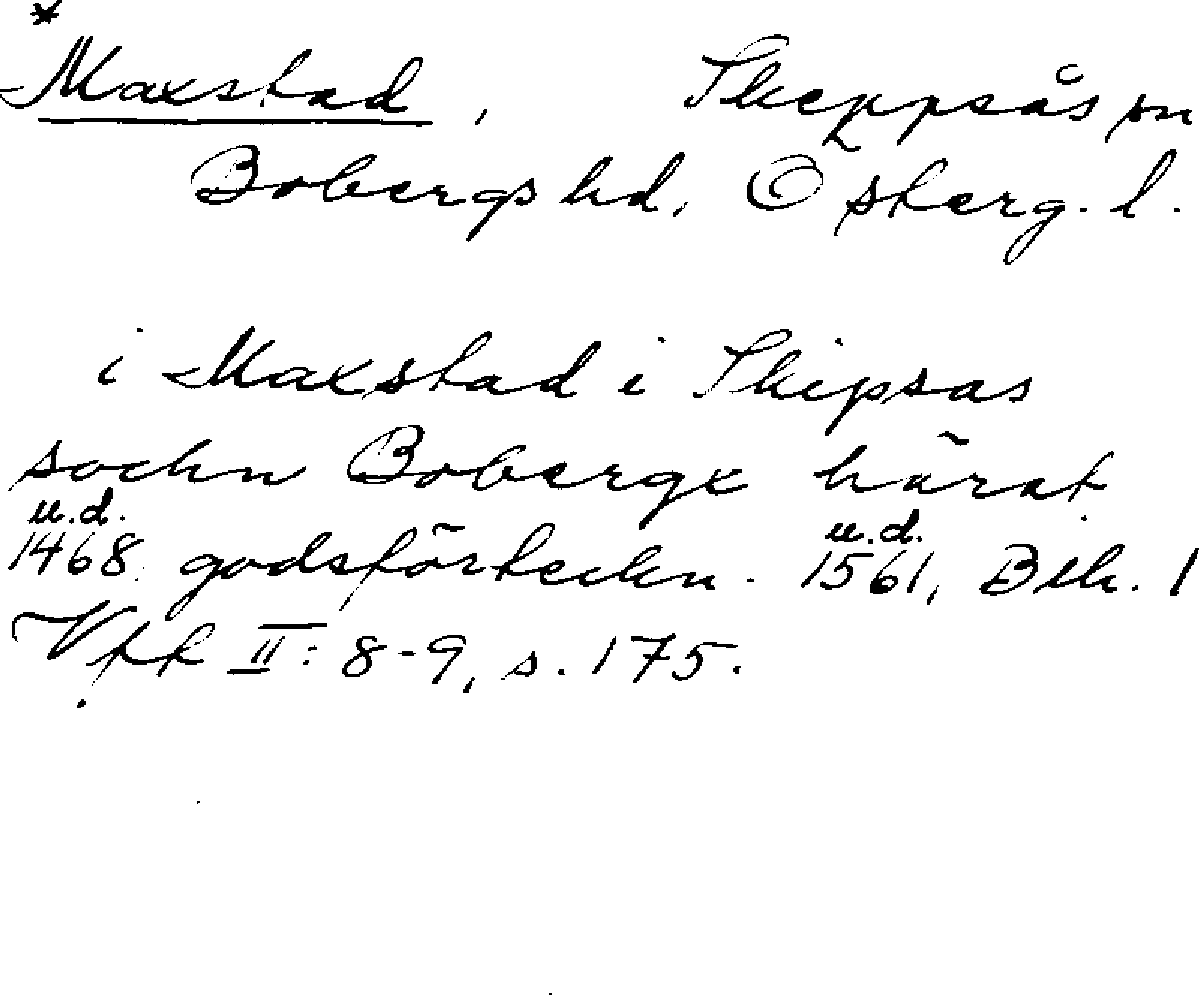 *
Maxstad, Skeppsås sn
Bobergs hd, Österg. l.
i Maxstad i Skipsas
sochn Bobergx härat
u.d. u.d.
1468 godsförteckn. 1561, Bih. 1
Vff II: 8-9, s. 175.